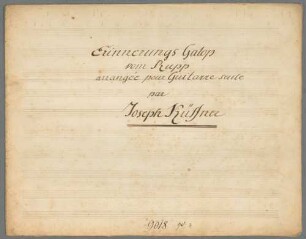 Erinnerungs Galop
vom Rupp
arrangée pour Guitarre seule
par
Joseph Küffner